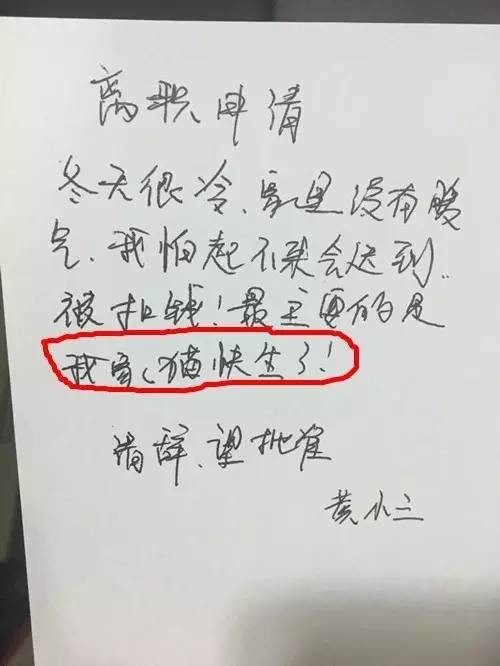 离职申请
冬天很冷、家里没有暖
气、我怕起不来会迟到..
被扣钱！最主要的是
我家、猫快生了！
请辞、望批准
黄小三